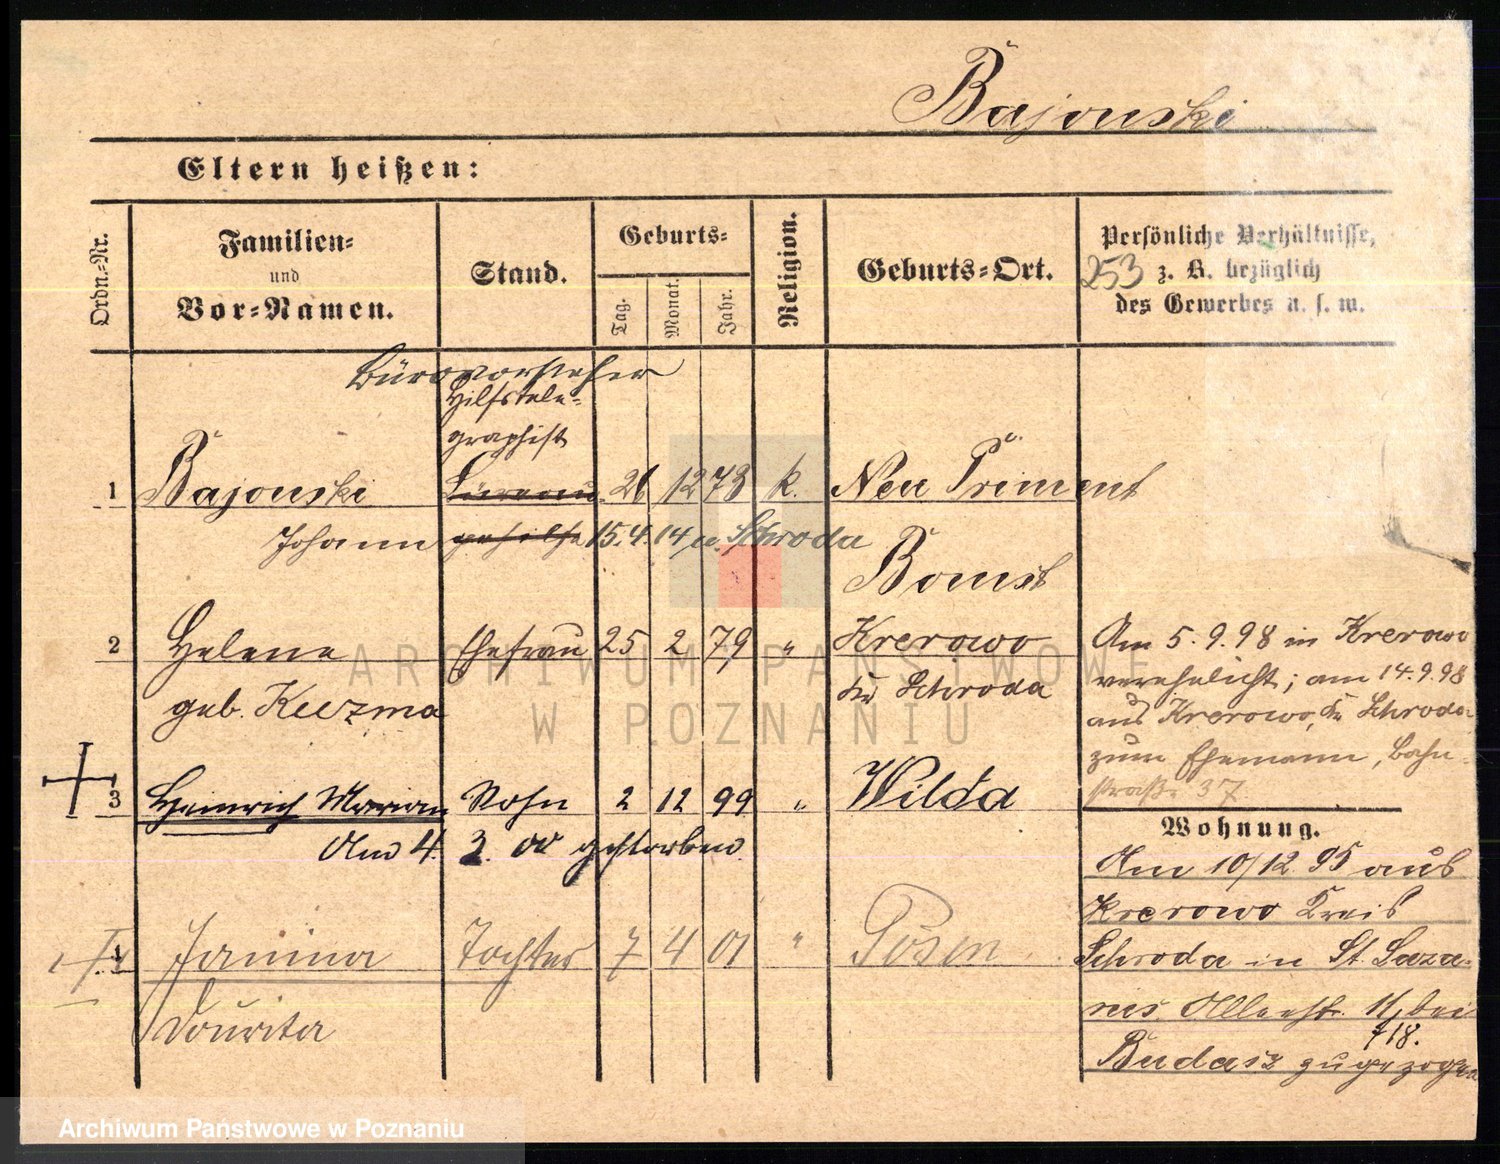 Bajonski
Eltern heißen:
Ordn.-Nr.
Familien-
und
Vor-Namen.
Stand.
Geburts-
Tag.
Monat.
Jahr.
Religion.
Geburts-Ort.
Persönliche Verhältnisse,
253 z. B. bezüglich
des Gewerbes u. s. w.
Bürovorsteher
Hilfstele-
graphist
1 Bajonski Büreau- 26 12 73 k. Neu Priment
Johann gehilfe 15.4.14 n. Schroda
Bomst
2 Helene Ehefrau 25 2 79 " Krerowo
geb. Kuczma Kr Schroda
Am 5.9.98 in Krerowo
verehelicht; am 14.9.98
aus Krerowo, Kr Schroda
zum Ehemann, Bahn-
straße 37
3 Heinrich Marian Sohn 2 12 99 " Wilda
Am 4. 3. 00 gestorben.
4 Janina Tochter 7 4 01 " Posen
Wohnung.
Am 10/12 95 aus
Krerowo Kreis
Schroda in St. Laza-
rus. 11 bei
718.
Budasz zugezogen
ARCHIWUM PAŃSTWOWE
W POZNANIU
Archiwum Państwowe w Poznaniu